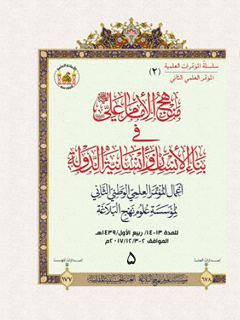 سلسلة المؤتمرات العلمية
(٢)
المؤتمر العلمي الثاني
منهج الإمام علي
في
بناء الإنسان وإنسانية الدولة
أعمال المؤتمر العلمي الوطني الثاني
لمؤسسة علوم نهج البلاغة
للمدة ١٣-١٤/ ربيع الأول/١٤٣٩هـ
الموافق ٢-٣/١٢/٢٠١٧م
٥